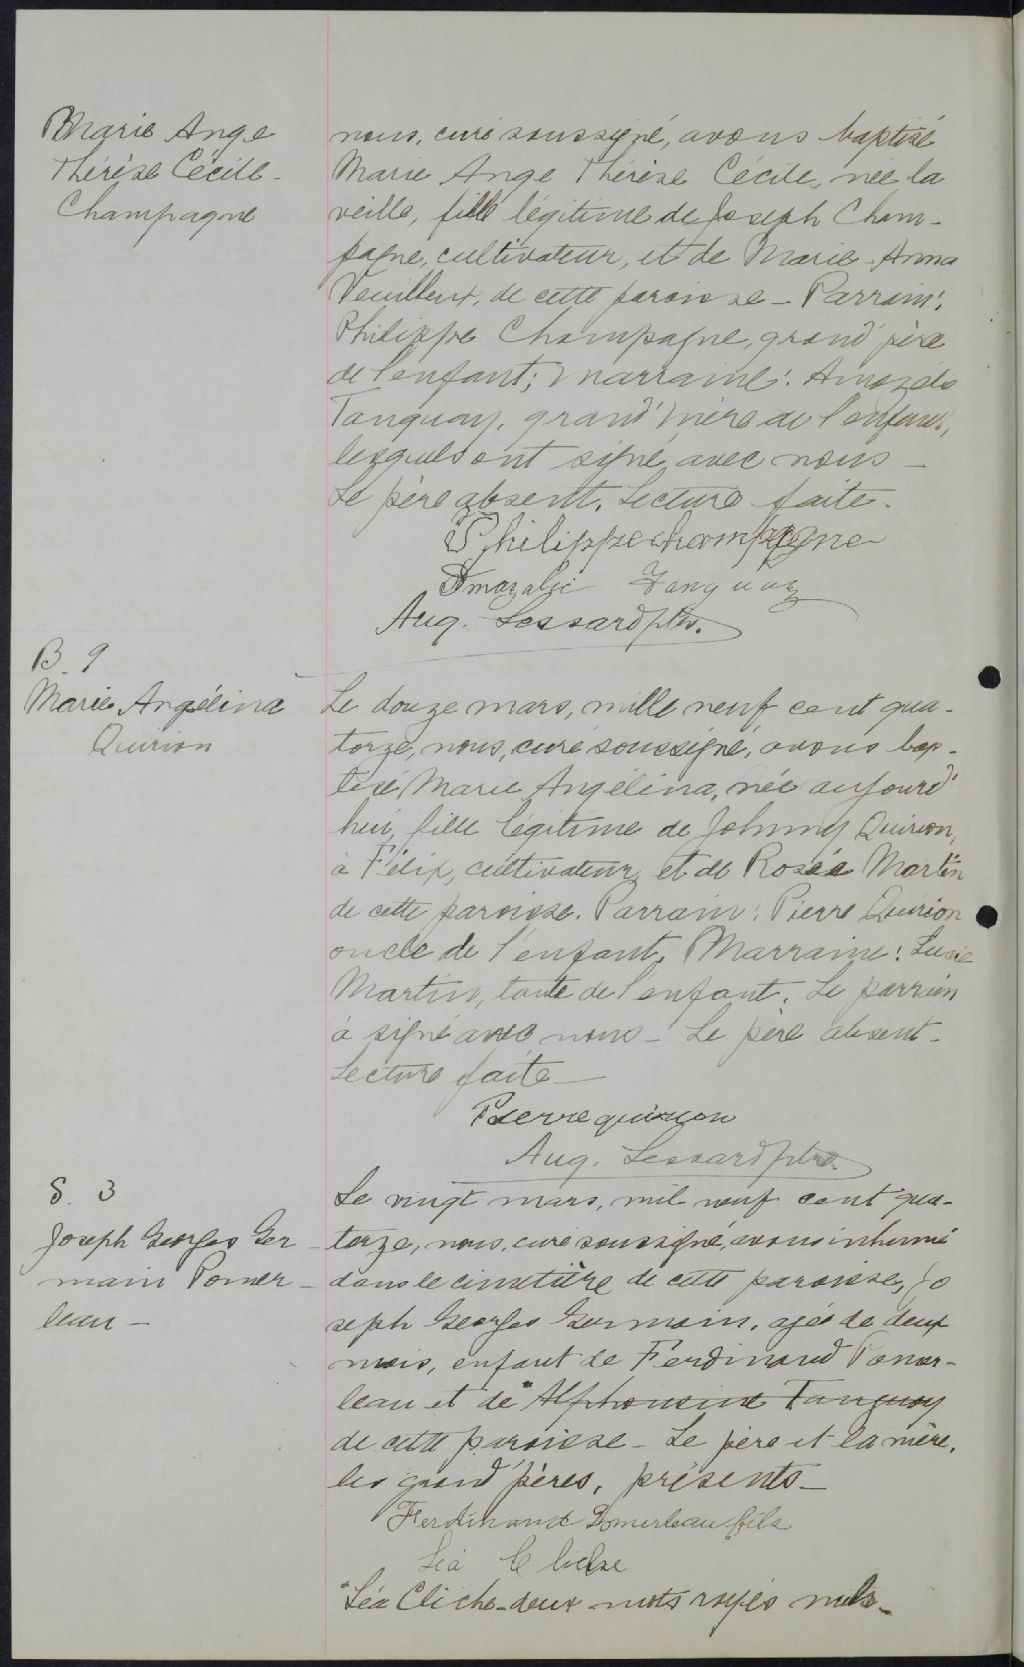 Marie Ange
Thérèse Cécile
Champagne
nous, curé soussigné, avons baptisé
Marie Ange Thérèse Cécile, née la
veille, fille légitime de Joseph Cham-
pagne, cultivateur, et de Marie-Anna
Veuilleux, de cette paroisse - Parrain:
Philippe Champagne, grand'père
de l'enfant; marraine: Amazélie
Tanguay, grand'mère de l'enfant,
lesquels ont signé avec nous -
Le père absent. Lecture faite.
Philippe champagne
Amazalie Tanguay
Aug. Lessard ptre.
B. 9
Marie Angélina
Quirion
Le douze mars, mille neuf cent qua-
torze, nous, curé soussigné, avons bap-
tisé Marie Angélina, née aujourd'
hui, fille légitime de Johnny Quirion,
à Félix, cultivateur, et de Rosée Martin
de cette paroisse. Parrain: Pierre Quirion
oncle de l'enfant, Marraine: Lucie
Martin, tante de l'enfant. Le parrain
à signé avec nous - Le père absent -
Lecture faite -
Pierre quirion
Aug. Lessard ptre.
S. 3
Joseph Georges Ger-
main Pomer-
leau -
Le vingt mars, mil neuf cent qua-
torze, nous, curé soussigné, avons inhumé
dans le cimetière de cette paroisse, Jo
seph Georges Germain, agée de deux
mois, enfant de Ferdinand Pomer-
leau et de Alphonsine Tanguay
de cette paroisse - Le père et la mère,
les grand'pères, présents -
Ferdinand Pomerleau fils
Léa Cliche
Léa Cliche - deux mots rayés nuls -